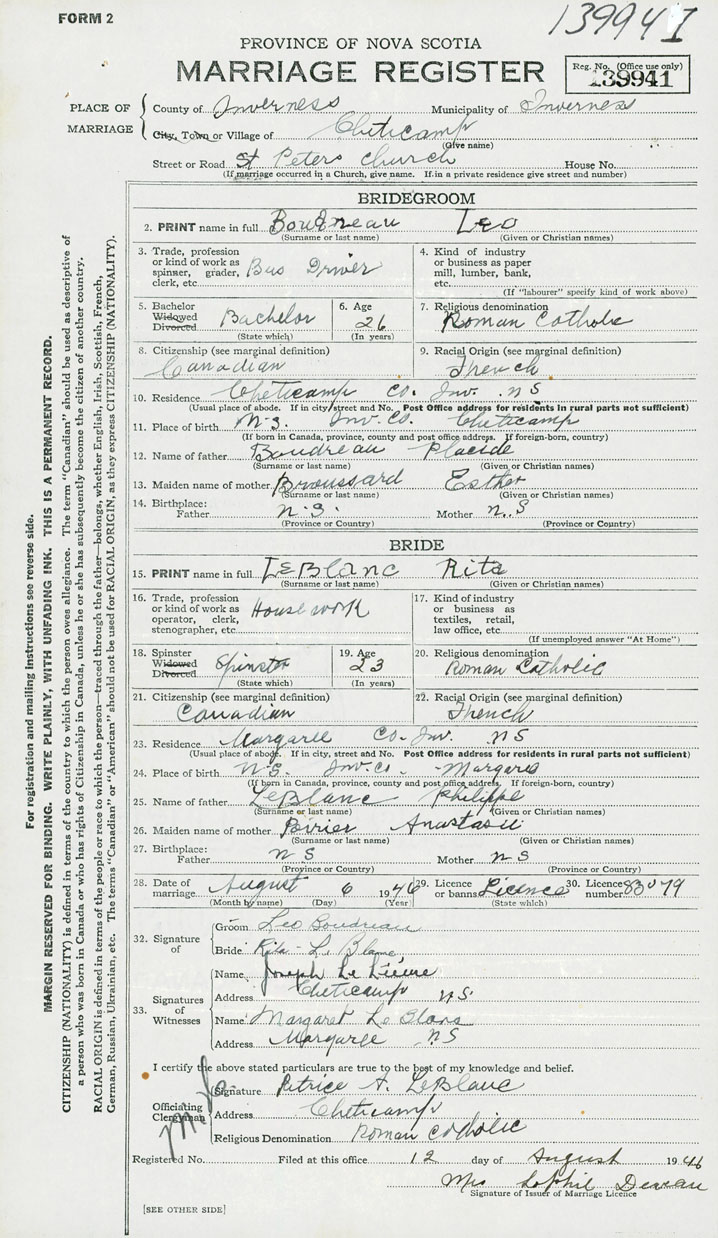 FORM 2
139941
PROVINCE OF NOVA SCOTIA
MARRIAGE REGISTER
Reg. No. (Office use only)
139941
PLACE OF MARRIAGE
County of Inverness Municipality of Inverness
City, Town or Village of Cheticamp
(Give name)
Street or Road St Peters Church House No.
(If marriage occurred in a Church, give name. If in a private residence give street and number)
BRIDEGROOM
2. PRINT name in full Boudreau Leo
(Surname or last name) (Given or Christian names)
3. Trade, profession or kind of work as spinner, grader, clerk, etc. Bus Driver
4. Kind of industry or business as paper mill, lumber, bank, etc.
(If "labourer" specify kind of work above)
5. Bachelor Widowed Divorced Bachelor
(State which)
6. Age 26
(In years)
7. Religious denomination
Roman Catholic
8. Citizenship (see marginal definition)
Canadian
9. Racial Origin (see marginal definition)
French
10. Residence Cheticamp Co. Inv. N S
(Usual place of abode. If in city, street and No. Post Office address for residents in rural parts not sufficient)
11. Place of birth N.S. Inv. Co. Cheticamp
(If born in Canada, province, county and post office address. If foreign-born, country)
12. Name of father Boudreau Placide
(Surname or last name) (Given or Christian names)
13. Maiden name of mother Broussard Esther
(Surname or last name) (Given or Christian names)
14. Birthplace: Father N.S. Mother N.S
(Province or Country) (Province or Country)
BRIDE
15. PRINT name in full LeBlanc Rita
(Surname or last name) (Given or Christian names)
16. Trade, profession or kind of work as operator, clerk, stenographer, etc. House work
17. Kind of industry or business as textiles, retail, law office, etc.
(If unemployed answer "At Home")
18. Spinster Widowed Divorced Spinster
(State which)
19. Age 23
(In years)
20. Religious denomination
Roman Catholic
21. Citizenship (see marginal definition)
Canadian
22. Racial Origin (see marginal definition)
French
23. Residence Margaree Co. Inv. N S
(Usual place of abode. If in city, street and No. Post Office address for residents in rural parts not sufficient)
24. Place of birth N.S. Inv. Co. - Margaree
(If born in Canada, province, county and post office address. If foreign-born, country)
25. Name of father LeBlanc Philippe
(Surname or last name) (Given or Christian names)
26. Maiden name of mother Poirier Anastasii
(Surname or last name) (Given or Christian names)
27. Birthplace: Father N S Mother N S
(Province or Country) (Province or Country)
28. Date of marriage August 6 1946
(Month by name) (Day) (Year)
29. Licence or banns Licence
(State which)
30. Licence number
32. Signature of
Groom Leo Boudreau
Bride Rita Le Blanc
33. Signatures of Witnesses
Name Joseph Le Lievre
Address Cheticamp NS
Name Margaret Le Blanc
Address Margaree NS
I certify the above stated particulars are true to the best of my knowledge and belief.
Officiating Clergyman
Signature Patrice A. LeBlanc
Address Cheticamp
Religious Denomination Roman Catholic
Registered No. Filed at this office 12 day of August 1946
Mrs Sophie Deveau
Signature of Issuer of Marriage Licence
[SEE OTHER SIDE]
For registration and mailing instructions see reverse side.
MARGIN RESERVED FOR BINDING. WRITE PLAINLY, WITH UNFADING INK. THIS IS A PERMANENT RECORD.
CITIZENSHIP (NATIONALITY) is defined in terms of the country to which the person owes allegiance. The term "Canadian" should be used as descriptive of
a person who was born in Canada or who has rights of Citizenship in Canada, unless he or she has subsequently become the citizen of another country.
RACIAL ORIGIN is defined in terms of the people or race to which the person—traced through the father—belongs, whether English, Irish, Scottish, French,
German, Russian, Ukrainian, etc. The terms "Canadian" or "American" should not be used for RACIAL ORIGIN, as they express CITIZENSHIP (NATIONALITY).